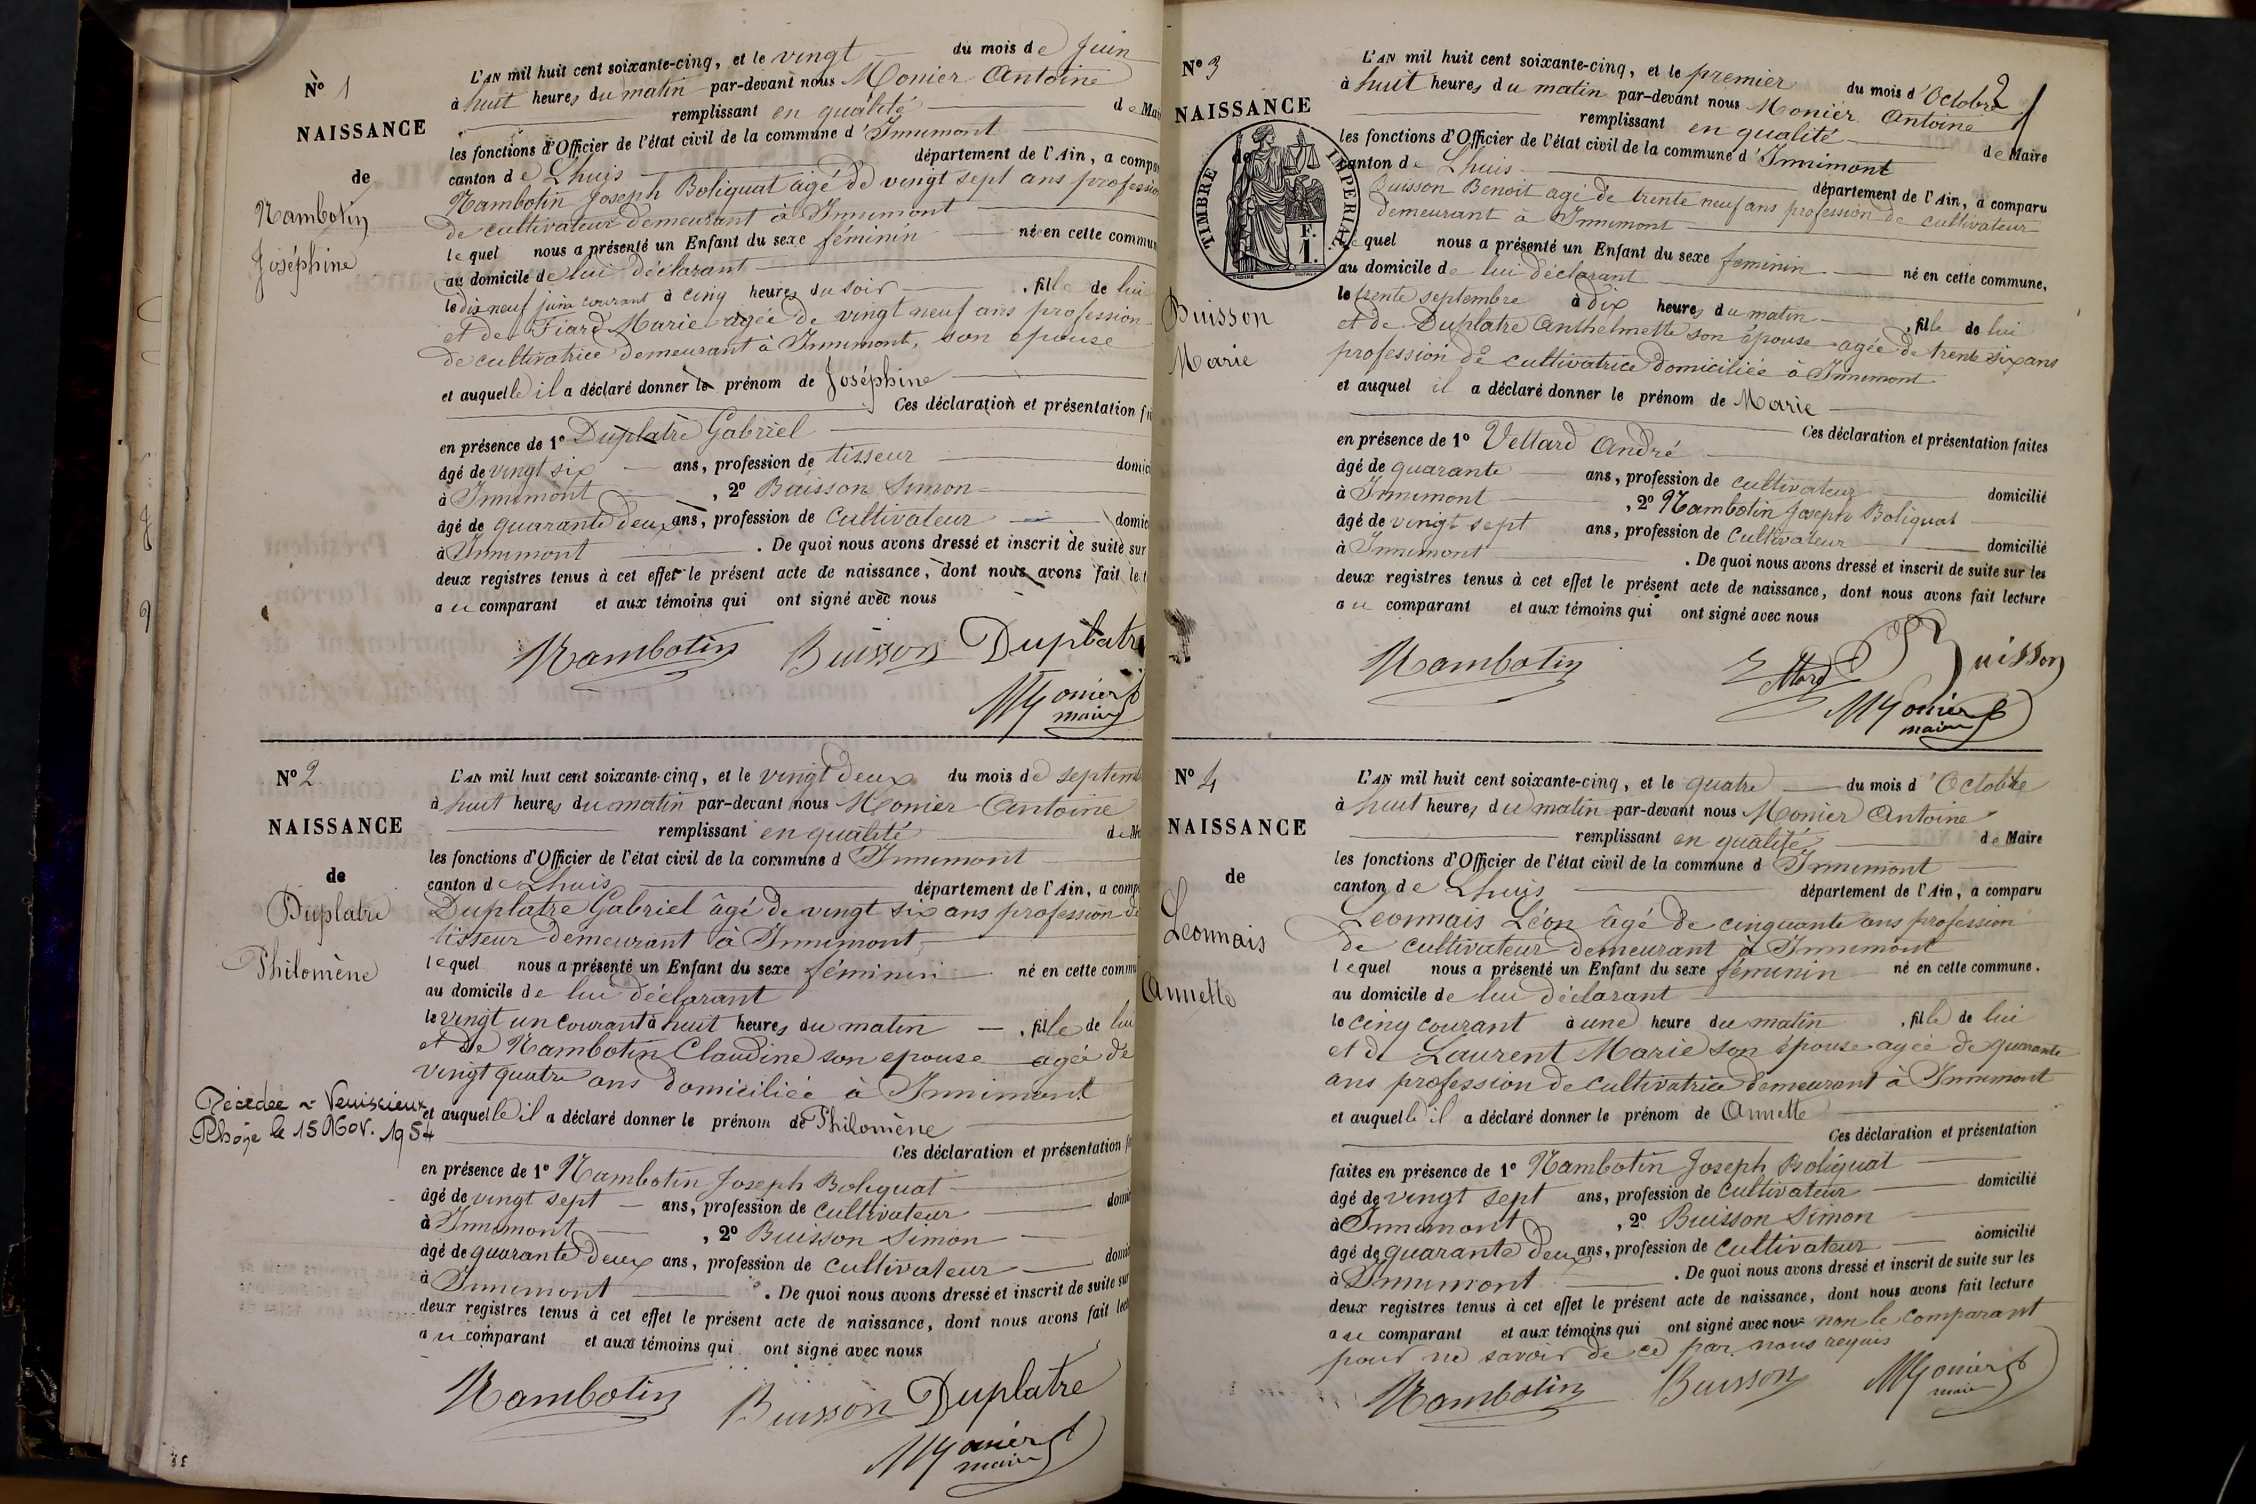 N° 1
NAISSANCE
de
Nambotin
Joséphine
L'AN mil huit cent soixante-cinq, et le vingt du mois de Juin
à huit heures du matin par-devant nous Monier Antoine
remplissant en qualité de Mai
les fonctions d'Officier de l'état civil de la commune d'Innimont
canton de Lhuis département de l'Ain, a compa
Nambotin Joseph Boliquat âgé de vingt sept ans profession
de cultivateur demeurant à Innimont
lequel nous a présenté un Enfant du sexe féminin né en cette commun
au domicile de lui déclarant
le dix neuf juin courant à cinq heures du soir, fille de lui
et de Fiard Marie âgée de vingt neuf ans profession
de cultivatrice demeurant à Innimont, son épouse
et auquelle il a déclaré donner le prénom de Joséphine
Ces déclaration et présentation f
en présence de 1° Duplatre Gabriel
âgé de vingt six ans, profession de tisseur domic
à Innimont, 2° Buisson Simon
âgé de quarante deux ans, profession de cultivateur domic
à Innimont. De quoi nous avons dressé et inscrit de suite sur
deux registres tenus à cet effet le présent acte de naissance, dont nous avons fait le
au comparant et aux témoins qui ont signé avec nous
Nambotin Buisson Duplatre
Monier
maire
N° 2
NAISSANCE
de
Duplatre
Philomène
Décédée à Venissieux
Rhône le 15 Nov. 1954
L'AN mil huit cent soixante-cinq, et le vingt deux du mois de septemb
à huit heures du matin par-devant nous Monier Antoine
remplissant en qualité de Ma
les fonctions d'Officier de l'état civil de la commune d Innimont
canton de Lhuis département de l'Ain, a comp
Duplatre Gabriel âgé de vingt six ans profession de
tisseur demeurant à Innimont,
lequel nous a présenté un Enfant du sexe féminin né en cette commu
au domicile de lui déclarant
le vingt un courant à huit heures du matin, fille de lui
et de Nambotin Claudine son epouse agée de
vingt quatre ans domiciliée à Innimont
et auquelle il a déclaré donner le prénom de Philomène
Ces déclaration et présentation f
en présence de 1° Nambotin Joseph Boliquat
âgé de vingt sept ans, profession de cultivateur domi
à Innimont, 2° Buisson Simon
âgé de quarante deux ans, profession de cultivateur domi
à Innimont. De quoi nous avons dressé et inscrit de suite sur
deux registres tenus à cet effet le présent acte de naissance, dont nous avons fait lec
au comparant et aux témoins qui ont signé avec nous
Nambotin Buisson Duplatre
Monier
maire
2
N° 3
NAISSANCE
de
TIMBRE IMPERIAL
F.
1.
Buisson
Marie
L'AN mil huit cent soixante-cinq, et le premier du mois d'Octobre
à huit heures du matin par-devant nous Monier Antoine
remplissant en qualité de Maire
les fonctions d'Officier de l'état civil de la commune d'Innimont
canton de Lhuis département de l'Ain, a comparu
Buisson Benoit agé de trente neuf ans profession de cultivateur
demeurant à Innimont
lequel nous a présenté un Enfant du sexe feminin né en cette commune,
au domicile de lui déclarant
le trente septembre à dix heures du matin, fille de lui
et de Duplatre Anthelmette son épouse agée de trente six ans
profession de cultivatrice domiciliée à Innimont
et auquel il a déclaré donner le prénom de Marie
Ces déclaration et présentation faites
en présence de 1° Vettard André
âgé de quarante ans, profession de cultivateur domicilié
à Innimont, 2° Nambotin Joseph Boliquat
âgé de vingt sept ans, profession de cultivateur domicilié
à Innimont. De quoi nous avons dressé et inscrit de suite sur les
deux registres tenus à cet effet le présent acte de naissance, dont nous avons fait lecture
au comparant et aux témoins qui ont signé avec nous
Nambotin Buisson
Monier
maire
N° 4
NAISSANCE
de
Leonnais
Annette
L'AN mil huit cent soixante-cinq, et le quatre du mois d'Octobre
à huit heures du matin par-devant nous Monier Antoine
remplissant en qualité de Maire
les fonctions d'Officier de l'état civil de la commune d Innimont
canton de Lhuis département de l'Ain, a comparu
Leonnais Léon âgé de cinquante ans profession
de cultivateur demeurant à Innimont
lequel nous a présenté un Enfant du sexe féminin né en cette commune.
au domicile de lui déclarant
le cinq courant à une heure du matin, fille de lui
et de Laurent Marie son épouse agée de quarante
ans profession de cultivatrice demeurant à Innimont
et auquelle il a déclaré donner le prénom de Annette
Ces déclaration et présentation
faites en présence de 1° Nambotin Joseph Boliquat
âgé de vingt sept ans, profession de cultivateur domicilié
à Innimont, 2° Buisson Simon
âgé de quarante deux ans, profession de cultivateur domicilié
à Innimont. De quoi nous avons dressé et inscrit de suite sur les
deux registres tenus à cet effet le présent acte de naissance, dont nous avons fait lecture
au comparant et aux témoins qui ont signé avec nous non le comparant
pour ne savoir de ce par nous requis
Nambotin Buisson Monier
maire